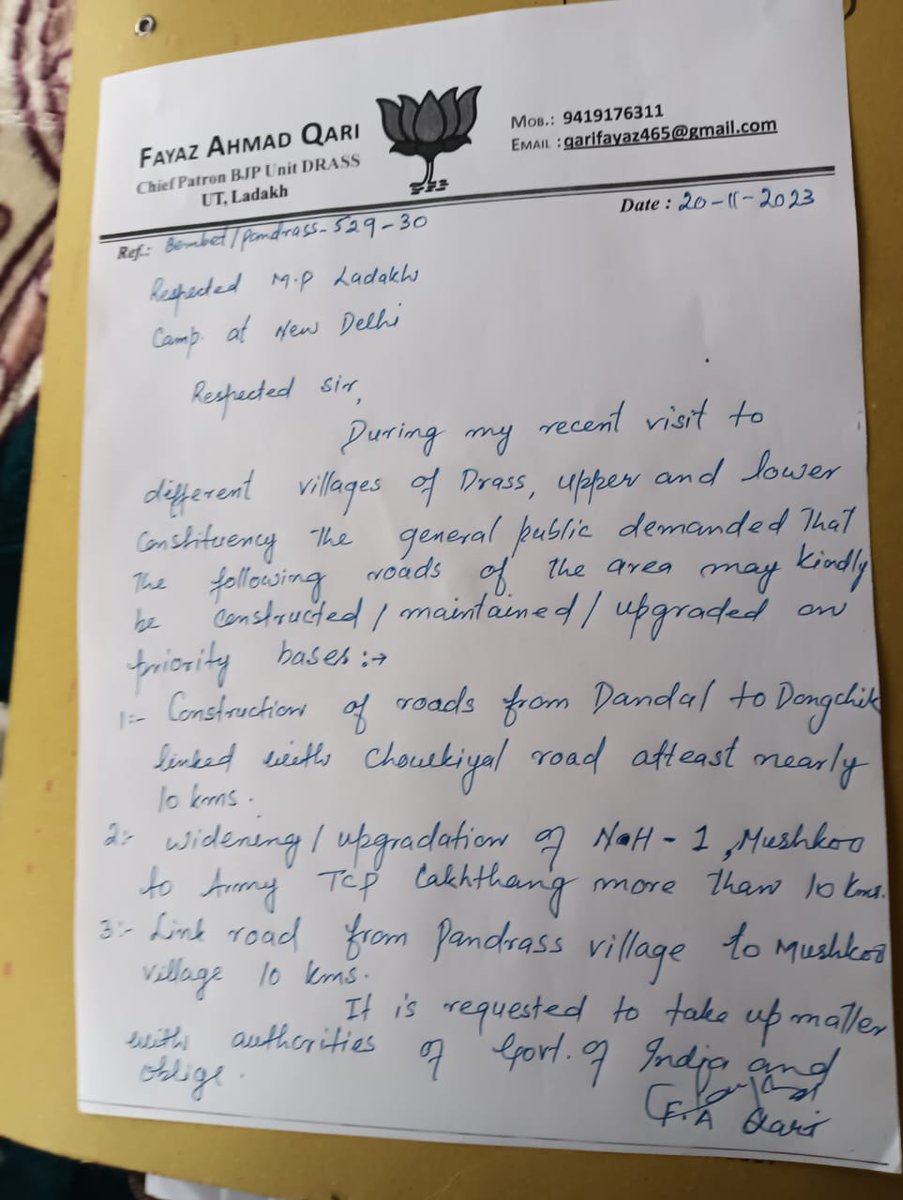 FAYAZ AHMAD QARI
Chief Patron BJP Unit DRASS
UT, Ladakh
MOB.: 9419176311
EMAIL : qarifayaz465@gmail.com
Ref.: Bembet/pandrass-529-30
Date : 20-11-2023
Respected M.P Ladakh
Camp. at New Delhi
Respected Sir,
During my recent visit to
different villages of Drass, upper and lower
Constituency the general public demanded that
the following roads of the area may kindly
be constructed / maintained / upgraded on
priority bases :→
1:- Construction of roads from Dandal to Dongchik
linked with Choukiyal road atleast nearly
10 kms.
2:- Widening / upgradation of NH-1, Mushkoo
to Army TCP Lakhthang more than 10 kms.
3:- Link road from Pandrass village to Mushkoo
village 10 kms.
It is requested to take up matter
with authorities of Govt. of India and
oblige.
F.A Qari